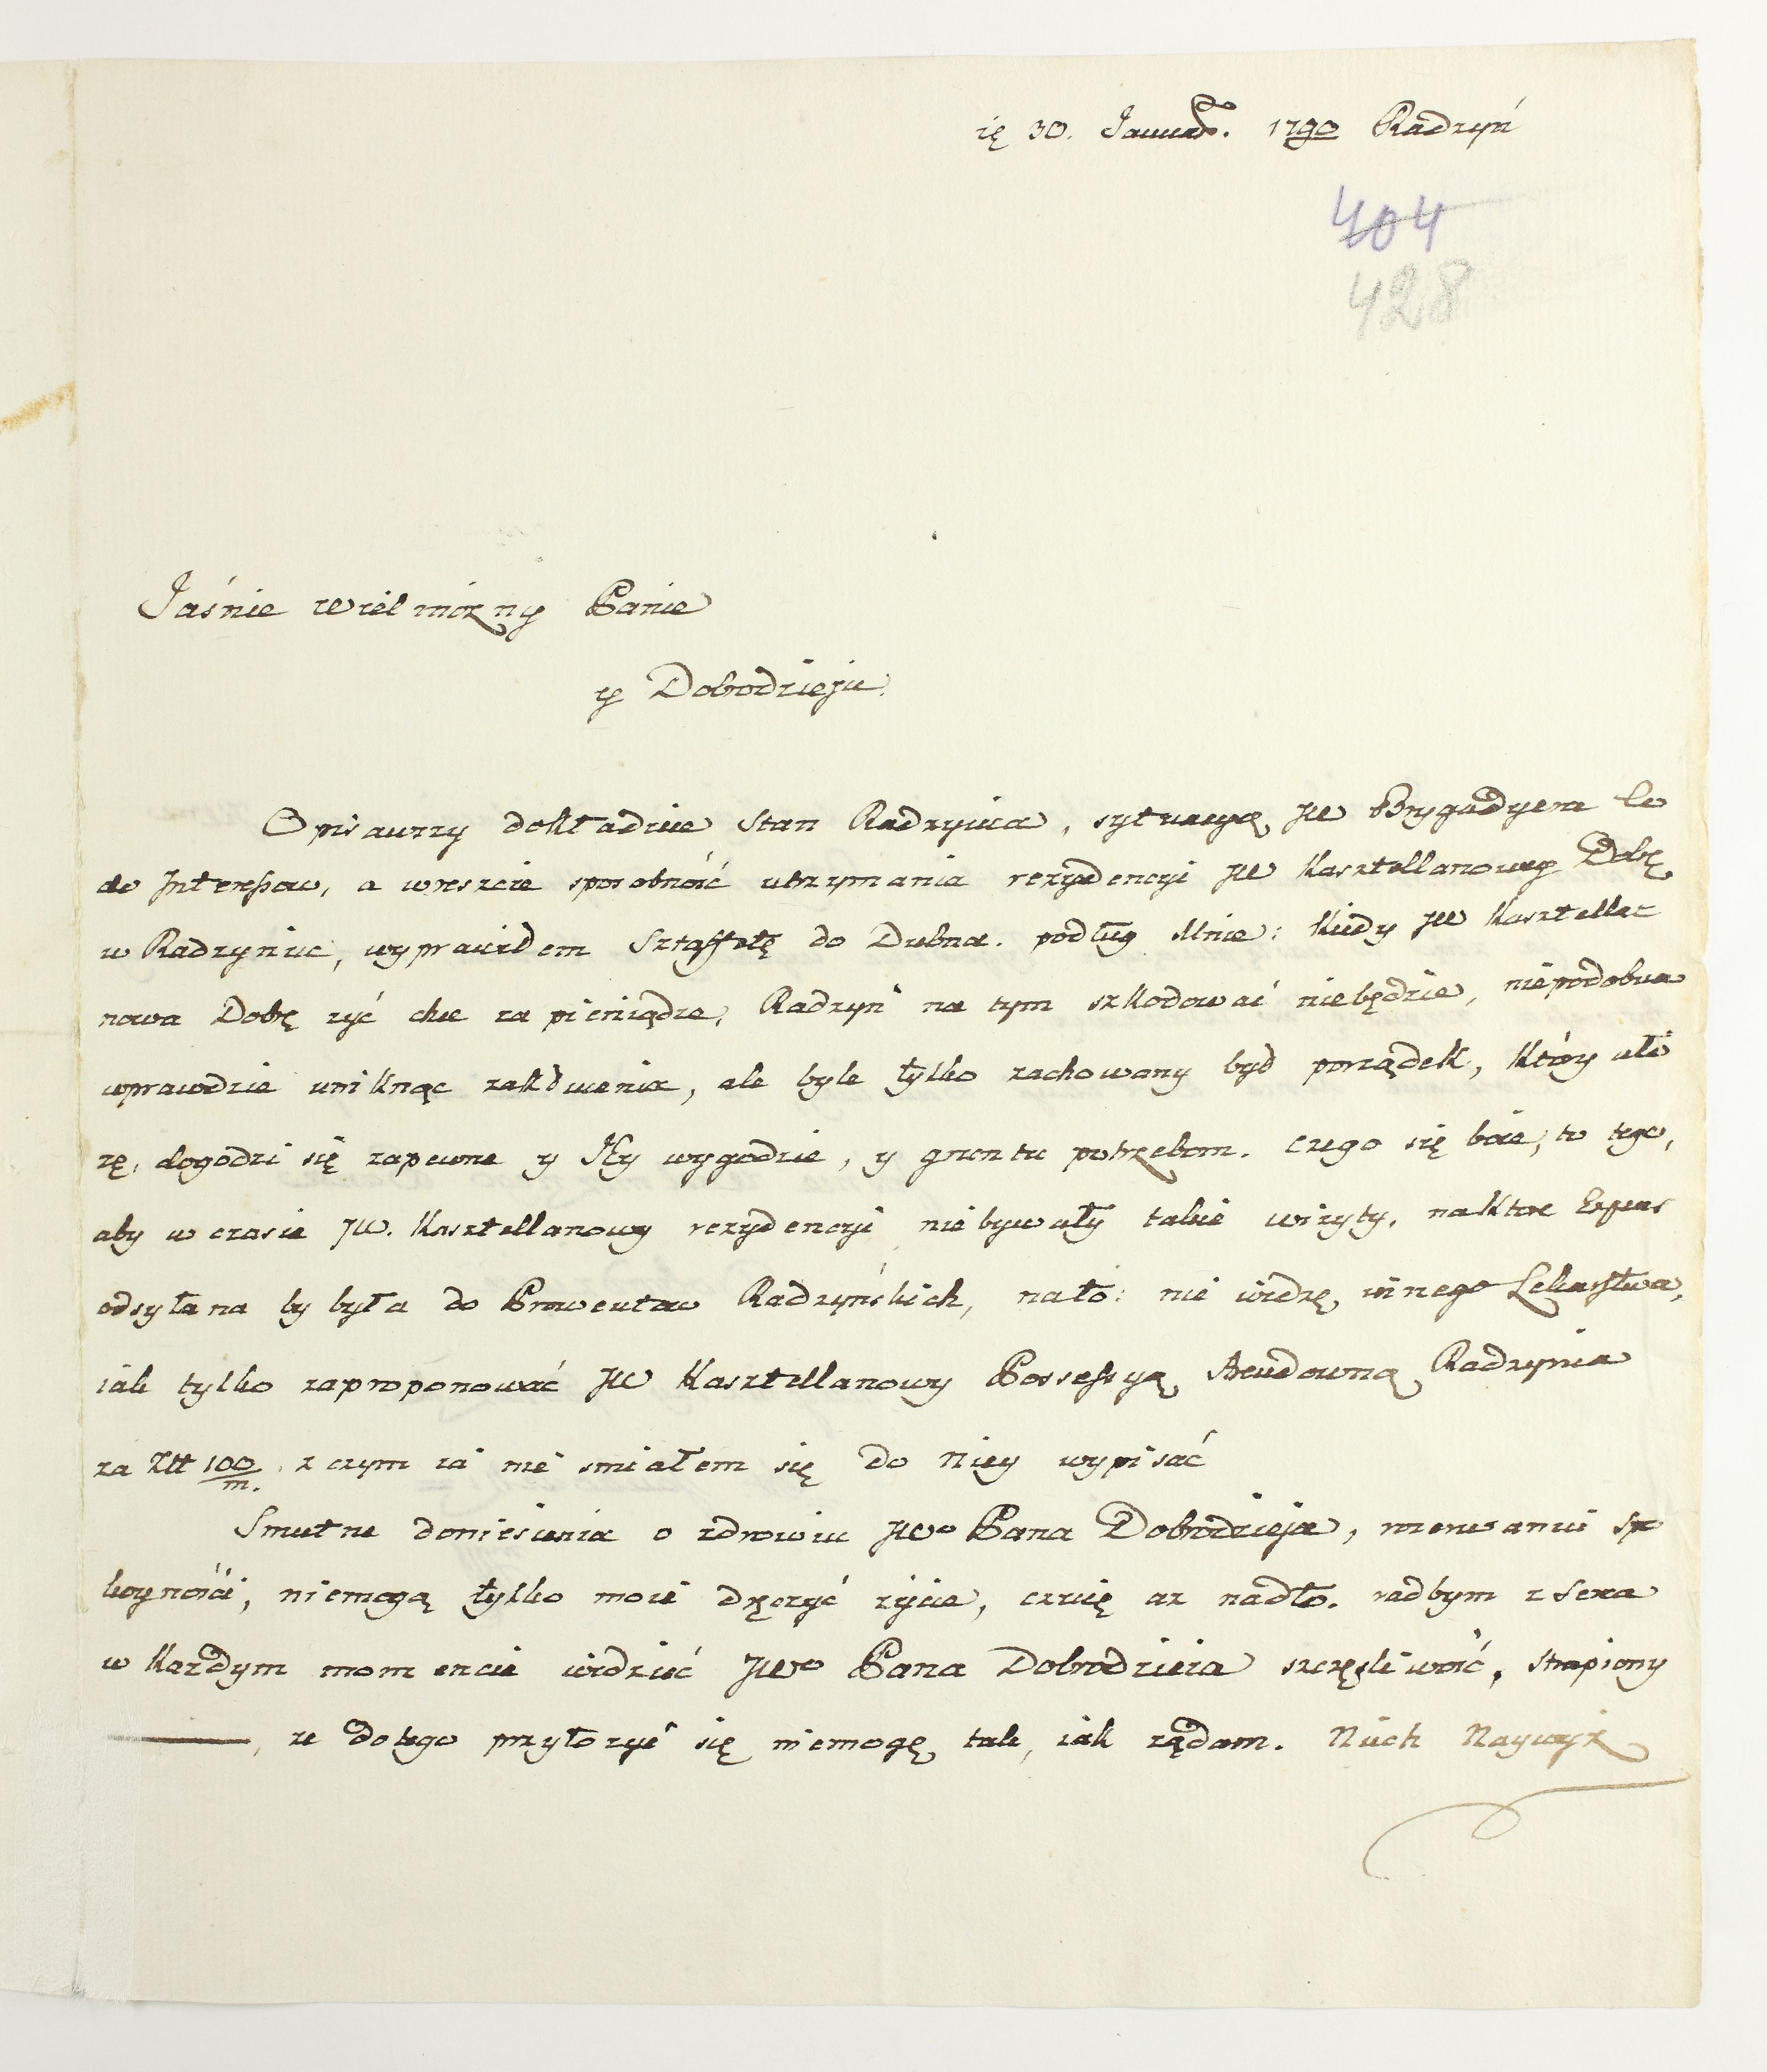 30. Januar. 1790 Radzyń
404
428
Jaśnie Wielmożny Panie
y Dobrodzieju.
Opisawszy dokładnie Stan Radzynia, sytuacyą JW Brygadyera Co
do Interessow, a wreszcie sposobność utrzymania rezydencyi JW Kasztellanowey Dobr
w Radzyniu, wyprawiłem Sztaffetę do Dubna. podług Mnie: kiedy JW Kasztella
nowa Dobr żyć chce za pieniądze, Radzyń na tym szkodować niebędzie, niepodobna
wprawdzie uniknąć zakłucenia, ale byle tylko zachowany był porządek, który uło
żę, dogodzi się zapewne y Jey wygodzie, y gruntu potrzebom. czego się boię, to tego,
aby w czasie JW. Kasztellanowy rezydencyi niebywały takie wizyty, naktore Expens
odsyłana by była do Prowentow Radzyńskich, nato: nie widzę innego Lekarstwa,
iak tylko zaproponować JW Kasztellanowy Possessyą Arendowną Radzynia
za Złł 100/m. z czym ia nie smiałem się do Niey wypisać
Smutne doniesienia o zdrowiu JWo Pana Dobrodzieja, mieszanie spo
koyności, niemogą tylko moie dręczyć życie, czuię aż nadto. radbym z Serca
w każdym momencie widzieć JWo Pana Dobrodzieia szczęśliwość, strapiony
, że dotego przyłożyć się niemogę tak, iak żądam. Niech Naywyż